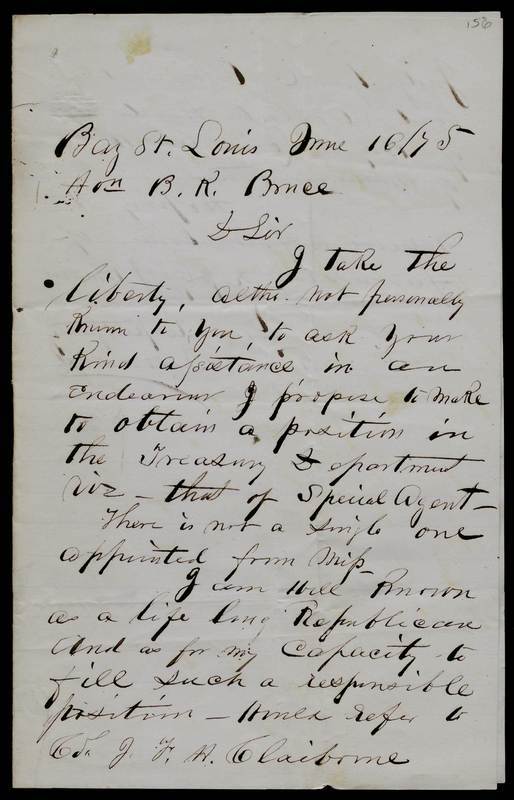 156
Bay St. Louis June 16/75
Hon B. K. Bruce
D Sir
I take the
liberty, altho. not personally
known to you, to ask your
kind assistance in an
endeavour I propose to make
to obtain a position in
the Treasury Department
viz - that of Special Agent -
There is not a single one
appointed from Miss
I am well known
as a life long Republican
And as for my capacity to
fill such a responsible
position - would refer to
Col. J. F. H. Claiborne